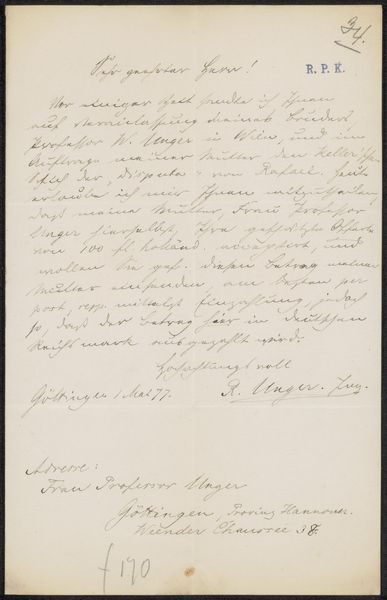 34.
R. P. K.
Sehr geehrter Herr!
Vor einiger Zeit sandte ich Ihnen
auf Veranlassung meines Bruders,
Professor W. Unger in Wien, und im
Auftrage meiner Mutter den Keller'schen
Stich der „Disputa“ von Rafael. Heute
erlaube ich mir Ihnen mitzutheilen,
daß meine Mutter, Frau Professor
Unger hierselbst, Ihre geschätzte Offerte
von 100 fl. holländ. acceptirt, und
wollen Sie gef. diesen Betrag meiner
Mutter einsenden, am besten per
Post, resp. mittelst Einzahlung, jedoch
so, daß der Betrag hier in deutschen
Reichsmark ausgezahlt wird.
Hochachtungsvoll
Göttingen 1 Mai 77. R. Unger. Ing.
Adresse:
Frau Professor Unger
Göttingen, Provinz Hannover.
Weender Chaussee
f 170